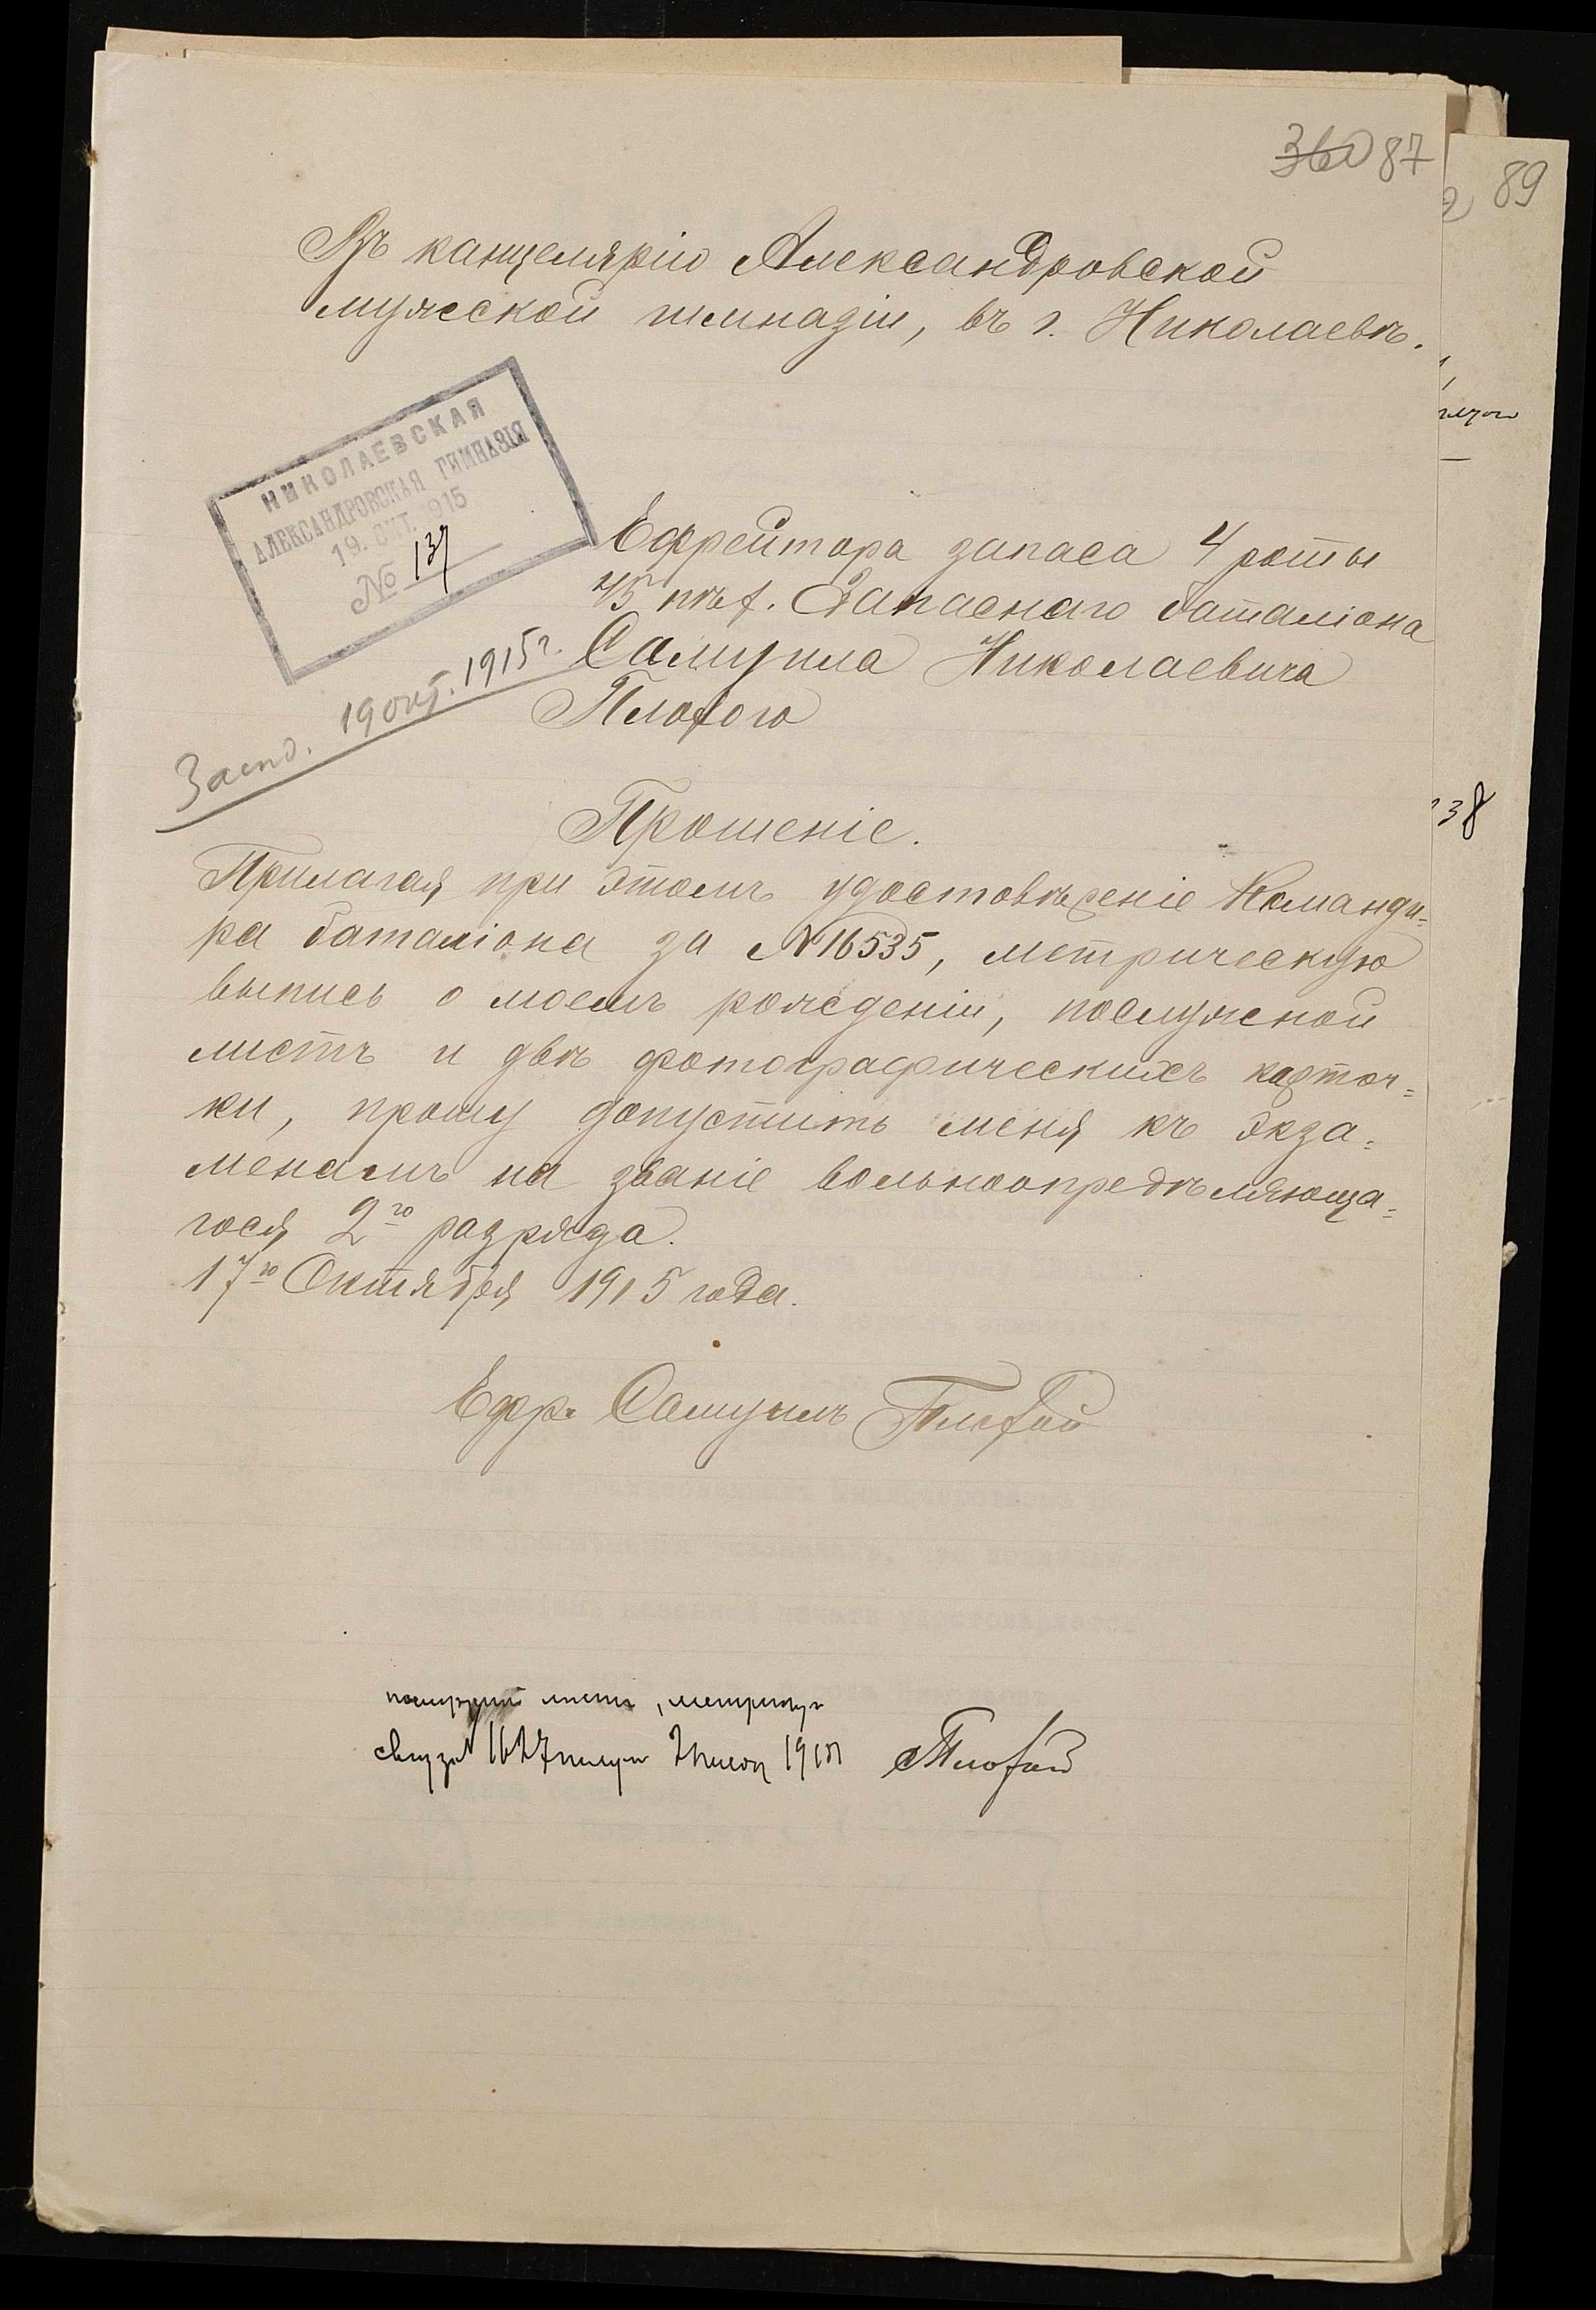 360 87
89
Въ канцелярію Александровской
мужской гимназіи, въ г. Николаевѣ.
НИКОЛАЕВСКАЯ
АЛЕКСАНДРОВСКАЯ ГИМНАЗІЯ
19. ОКТ. 1915
№ 137
Ефрейтора запаса 4 роты
45 пѣх. Запаснаго баталіона
Самуила Николаевича
Плохого
19 окт. 1915 г.
Прошеніе.
Прилагая при этомъ удостовѣреніе Команди-
ра баталіона за №16535, метрическую
выпись о моемъ рожденіи, послужной
листъ и двѣ фотографическихъ карточ-
ки, прошу допустить меня къ экза-
менамъ на званіе вольноопредѣляюща-
гося 2го разряда.
17го Октября 1915 года.
138
Ефр. Самуилъ Плохой
послужной листъ, метрическ
Плохой